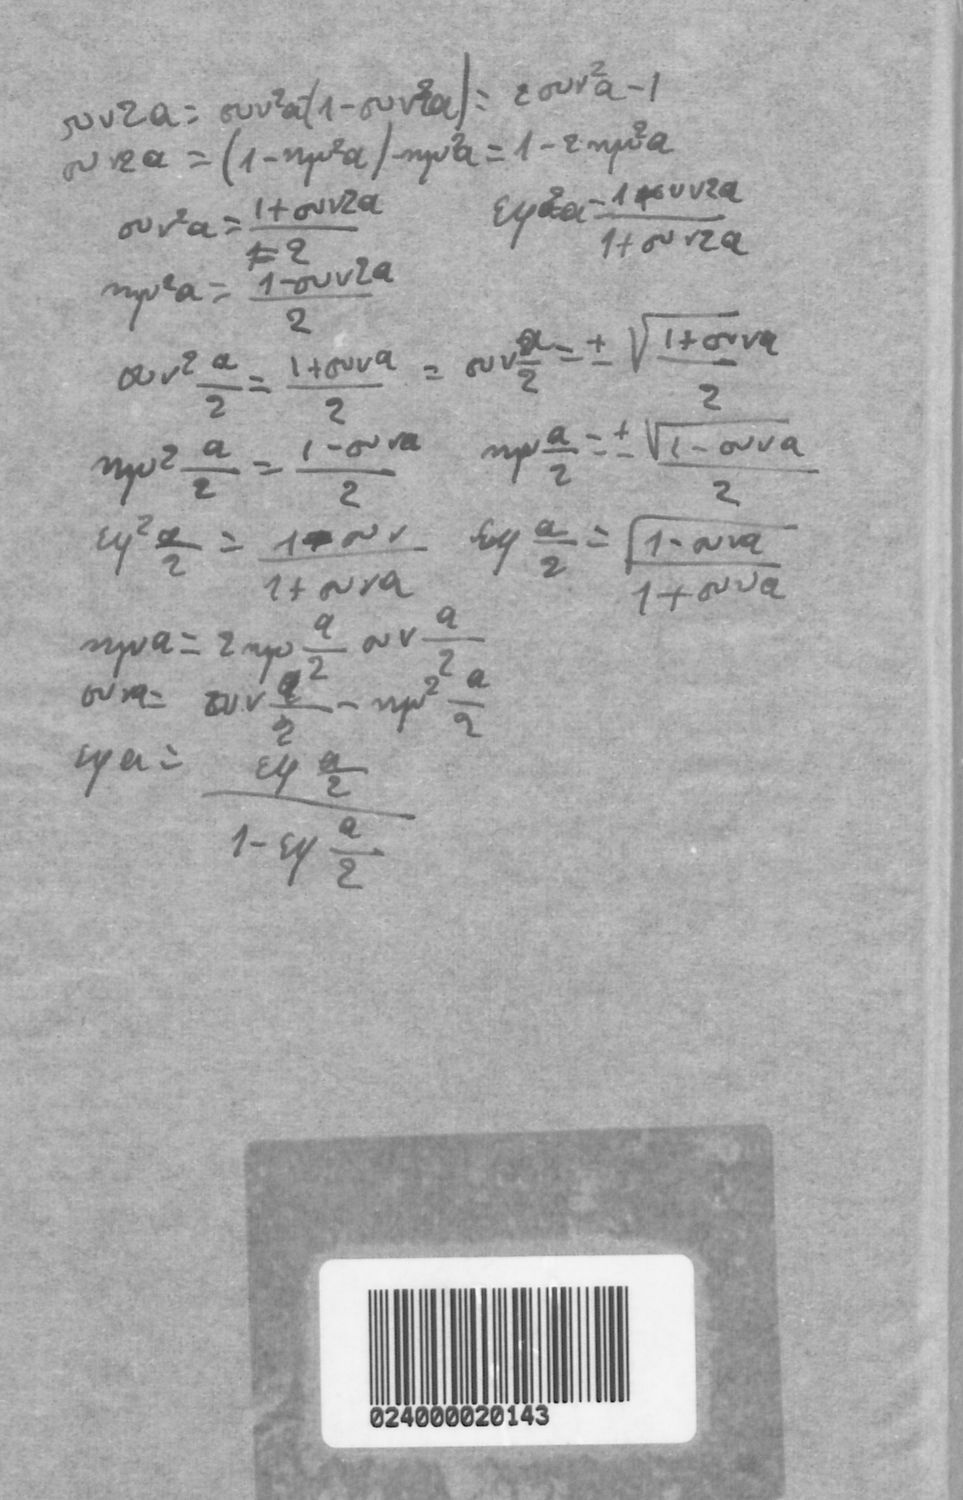 συν2α = συν²α(1-συν²α) = 2συν²α-1
συν2α = (1-ημ²α)-ημ²α = 1-2ημ²α
συν²α = 1+συν2α / 2    εφ²α = 1-συν2α / 1+συν2α
ημ²α = 1-συν2α / 2
συν² α/2 = 1+συνα / 2 = συν α/2 = ± √1+συνα / 2
ημ² α/2 = 1-συνα / 2    ημ α/2 = ± √1-συνα / 2
εφ² α/2 = 1-συν / 1+συνα    εφ α/2 = √1-συνα / 1+συνα
ημα = 2ημ α/2 συν α/2
συνα = συν α/2 - ημ² α/2
εφα = εφ α/2 / 1-εφ α/2
024000020143